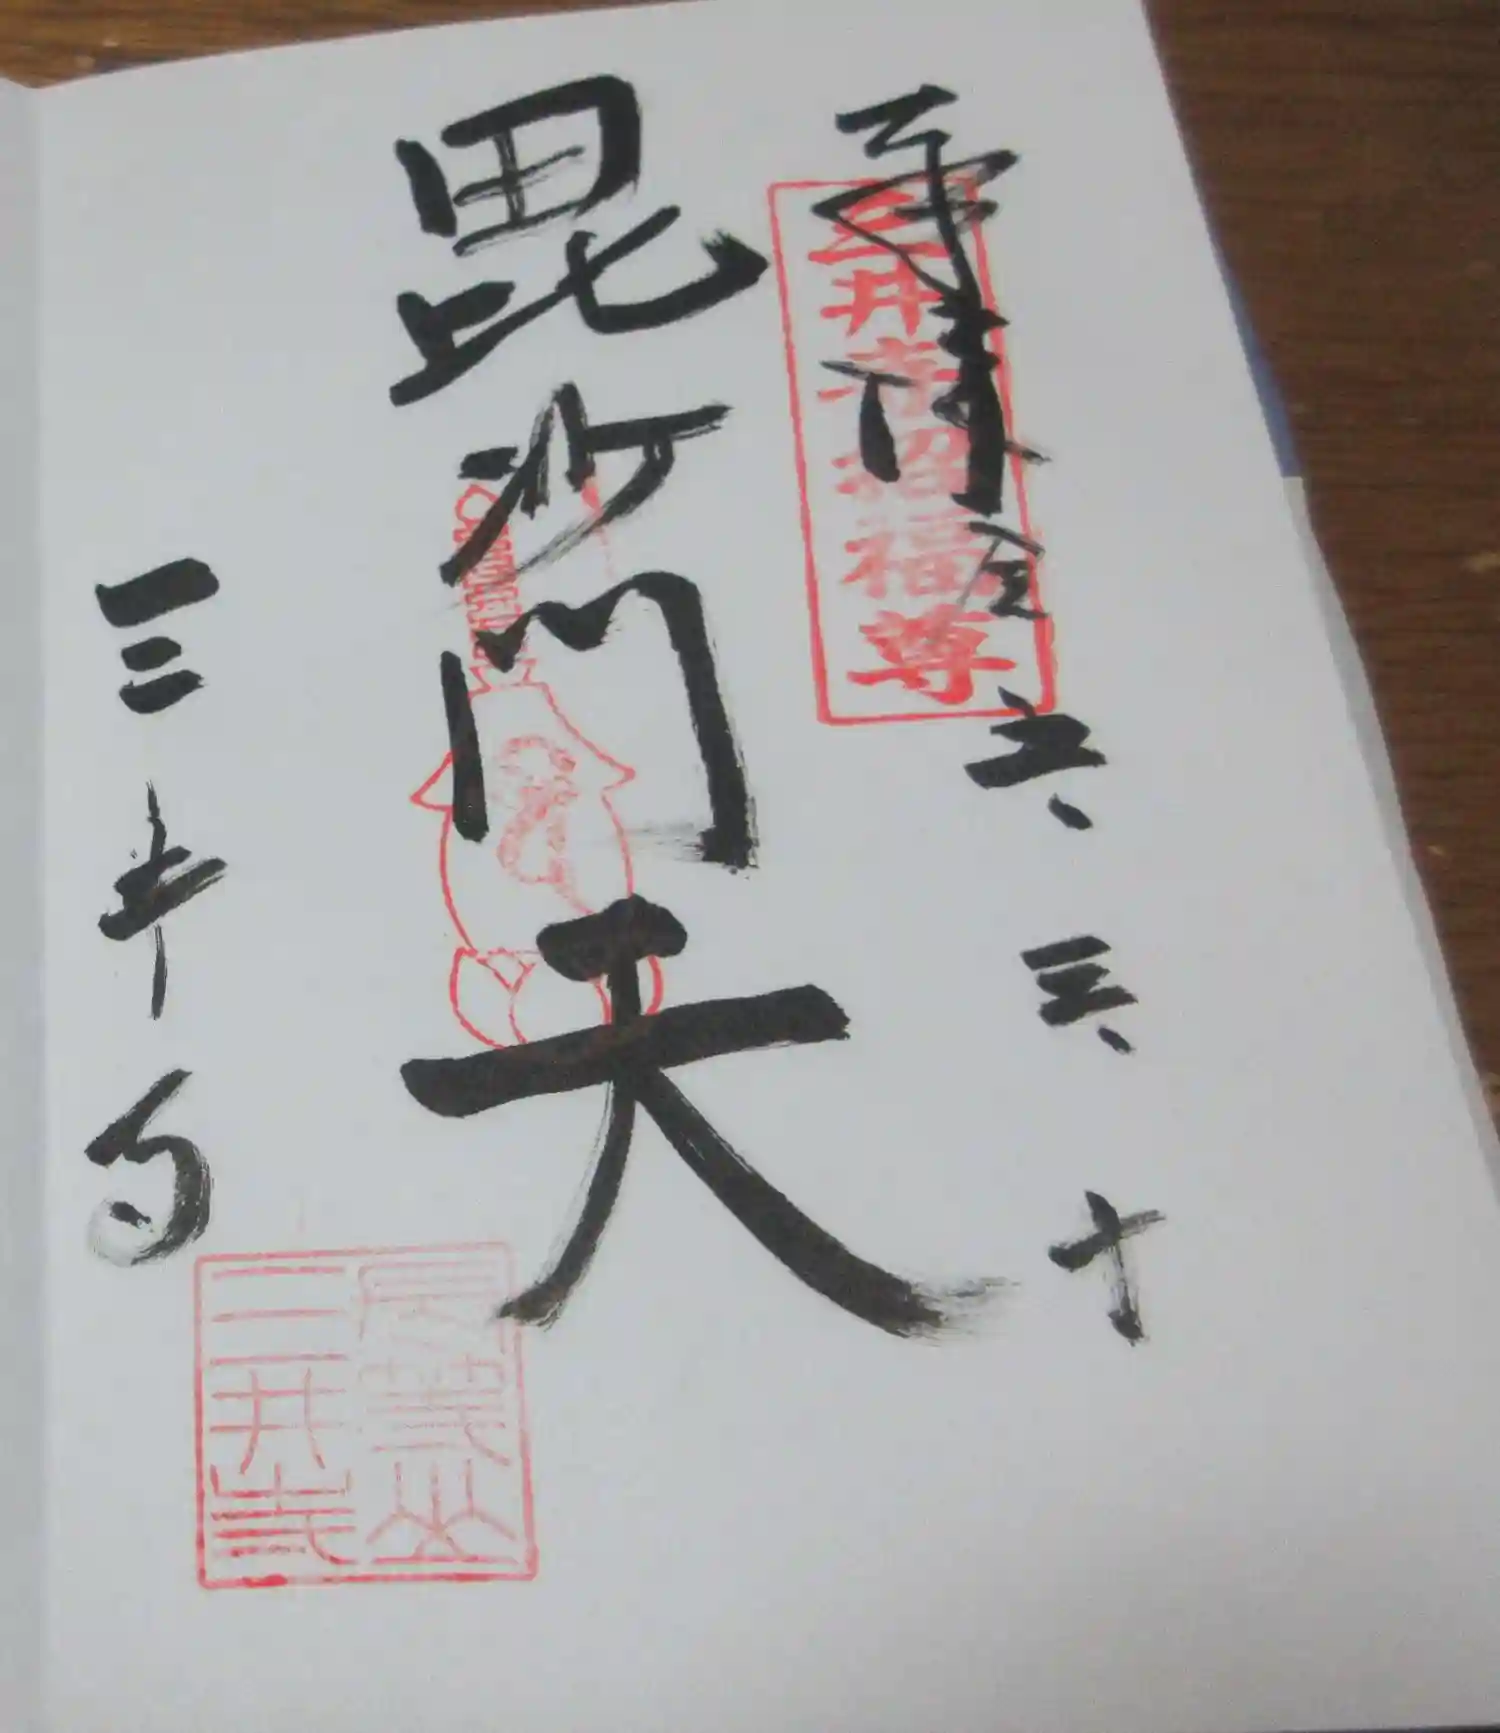 奉拝
令
六、三、十
三井寺招福尊
毘沙門天
三井寺
三井寺